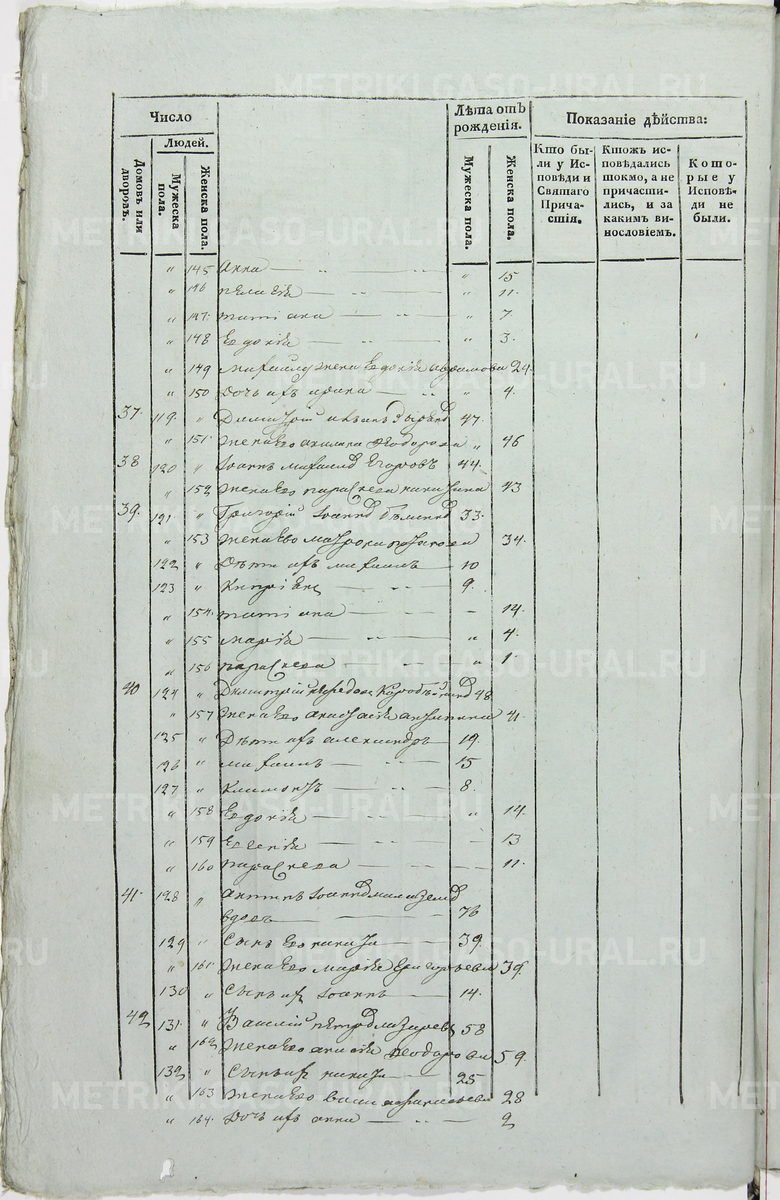 Число
Лѣта отъ рожденія.
Показаніе дѣйства:
Людей.
Домовъ или дворовъ.
Мужеска пола.
Женска пола.
Мужеска пола.
Женска пола.
Кто были у Исповѣди и Святаго Причастія.
Ктожъ исповѣдались токмо, а не причастились, и за какимъ винословіемъ.
Которые у Исповѣди не были.
" 145 Анна — " 15
" 146 пелагія — " 11
" 147 татіана — " 7
" 148 Евдокія — " 3
" 149 михаилу жена Евдокія 24
" 150 дочь ихъ ирина — " 4
37 119 " Димитрій 47
" 151 жена Его акилина Ѳеодорова " 46
38 120 " Іоаннъ михаиловъ Егоровъ 44
" 152 жена Его параскева никитина 43
39 121 " Григорій Іоанновъ 33
" 153 жена Его матрона 34
122 " Дѣти ихъ михаилъ — 10
123 " Кипріянъ — 9
" 154 татіана — 14
" 155 марія — " 4
" 156 параскева — " 1
40 124 " Димитрій 48
" 157 жена Его анастасія 41
125 " Дѣти ихъ александръ — 19
126 " михаилъ — 15
127 " Климонтъ — 8
" 158 Евдокія — " 14
" 159 Евгенія — 13
" 160 параскева — 11
41 128 " антипъ Іоанновъ
вдовъ — 76
129 " Сынъ Его никита — 39
" 161 жена Его марія Григорьева 39
130 " Сынъ ихъ Іоаннъ — 14
42 131 " Василій петровъ лазаревъ 58
" 162 жена Его анисія Ѳеодорова 59
132 " Сынъ ихъ никита — 25
" 163 жена Его 28
" 164 дочь ихъ анна — 2
METRIKI.GASO-URAL.RU